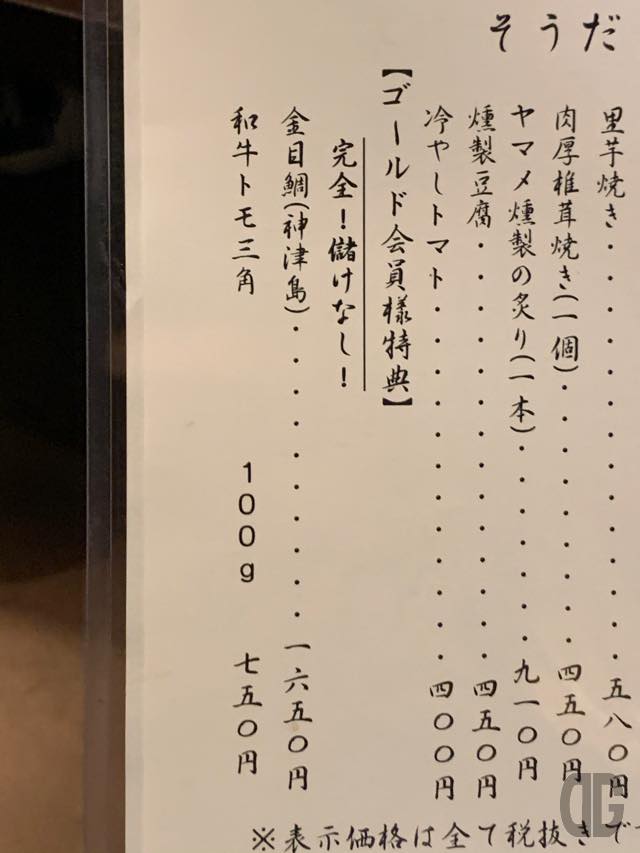 そうだ
里芋焼き・・・・・・・・・・・・・五八〇円
肉厚椎茸焼き(一個)・・・・・・・・四五〇円
ヤマメ燻製の炙り(一本)・・・・・・九一〇円
燻製豆腐・・・・・・・・・・・・・四五〇円
冷やしトマト・・・・・・・・・・・・四〇〇円
【ゴールド会員様特典】
完全!儲けなし!
金目鯛(神津島)・・・・・・・・・・一六五〇円
和牛トモ三角 100g 七五〇円
※表示価格は全て税抜きで